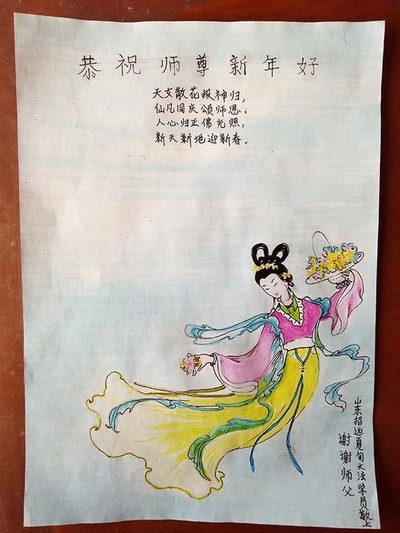 恭祝师尊新年好
天女散花报神归，
仙凡同庆颂师恩；
人心归正佛光照，
新天新地迎新春．
山东招远夏甸大法学员敬上
谢谢师父